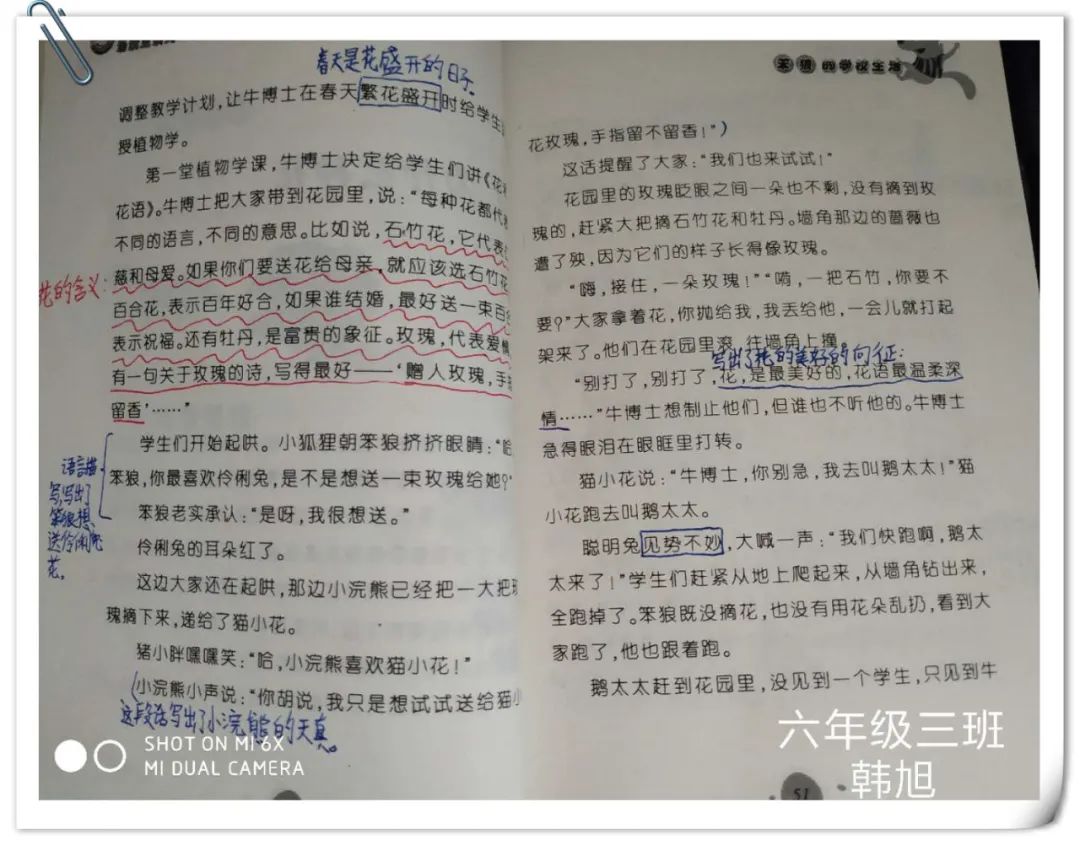 春天是花盛开的日子。
调整教学计划,让牛博士在春天繁花盛开时给学生
授植物学。
第一堂植物学课,牛博士决定给学生们讲《花
花语》。牛博士把大家带到花园里,说:“每种花都代
不同的语言,不同的意思。比如说,石竹花,它代表
慈和母爱。如果你们要送花给母亲,就应该选石竹花
花的含义:
百合花,表示百年好合,如果谁结婚,最好送一束百
表示祝福。还有牡丹,是富贵的象征。玫瑰,代表爱情
有一句关于玫瑰的诗,写得最好——‘赠人玫瑰,手
留香’……”
学生们开始起哄。小狐狸朝笨狼挤挤眼睛:“哈
笨狼,你最喜欢伶俐兔,是不是想送一束玫瑰给她?”
语言描
写,写出了
笨狼想
送伶俐兔
花。
笨狼老实承认:“是呀,我很想送。”
伶俐兔的耳朵红了。
这边大家还在起哄,那边小浣熊已经把一大把玫
瑰摘下来,递给了猫小花。
猪小胖嘿嘿笑:“哈,小浣熊喜欢猫小花!”
小浣熊小声说:“你胡说,我只是想试试送给猫小
这段话写出了小浣熊的天真。
SHOT ON MI 6X
MI DUAL CAMERA
笨狼的学校生活
花玫瑰,手指留不留香!”)
这话提醒了大家:“我们也来试试!”
花园里的玫瑰眨眼之间一朵也不剩,没有摘到玫
瑰的,赶紧大把摘石竹花和牡丹。墙角那边的蔷薇也
遭了殃,因为它们的样子长得像玫瑰。
“嗨,接住,一朵玫瑰!”“嗬,一把石竹,你要不
要?”大家拿着花,你抛给我,我丢给他,一会儿就打起
架来了。他们在花园里滚,往墙角上撞。
写出了花的美好的向征:
“别打了,别打了,花,是最美好的,花语最温柔深
情……”牛博士想制止他们,但谁也不听他的。牛博士
急得眼泪在眼眶里打转。
猫小花说:“牛博士,你别急,我去叫鹅太太!”猫
小花跑去叫鹅太太。
聪明兔见势不妙,大喊一声:“我们快跑啊,鹅太
太来了!”学生们赶紧从地上爬起来,从墙角钻出来,
全跑掉了。笨狼既没摘花,也没有用花朵乱扔,看到大
家跑了,他也跟着跑。
鹅太太赶到花园里,没见到一个学生,只见到牛
六年级三班
韩旭
51